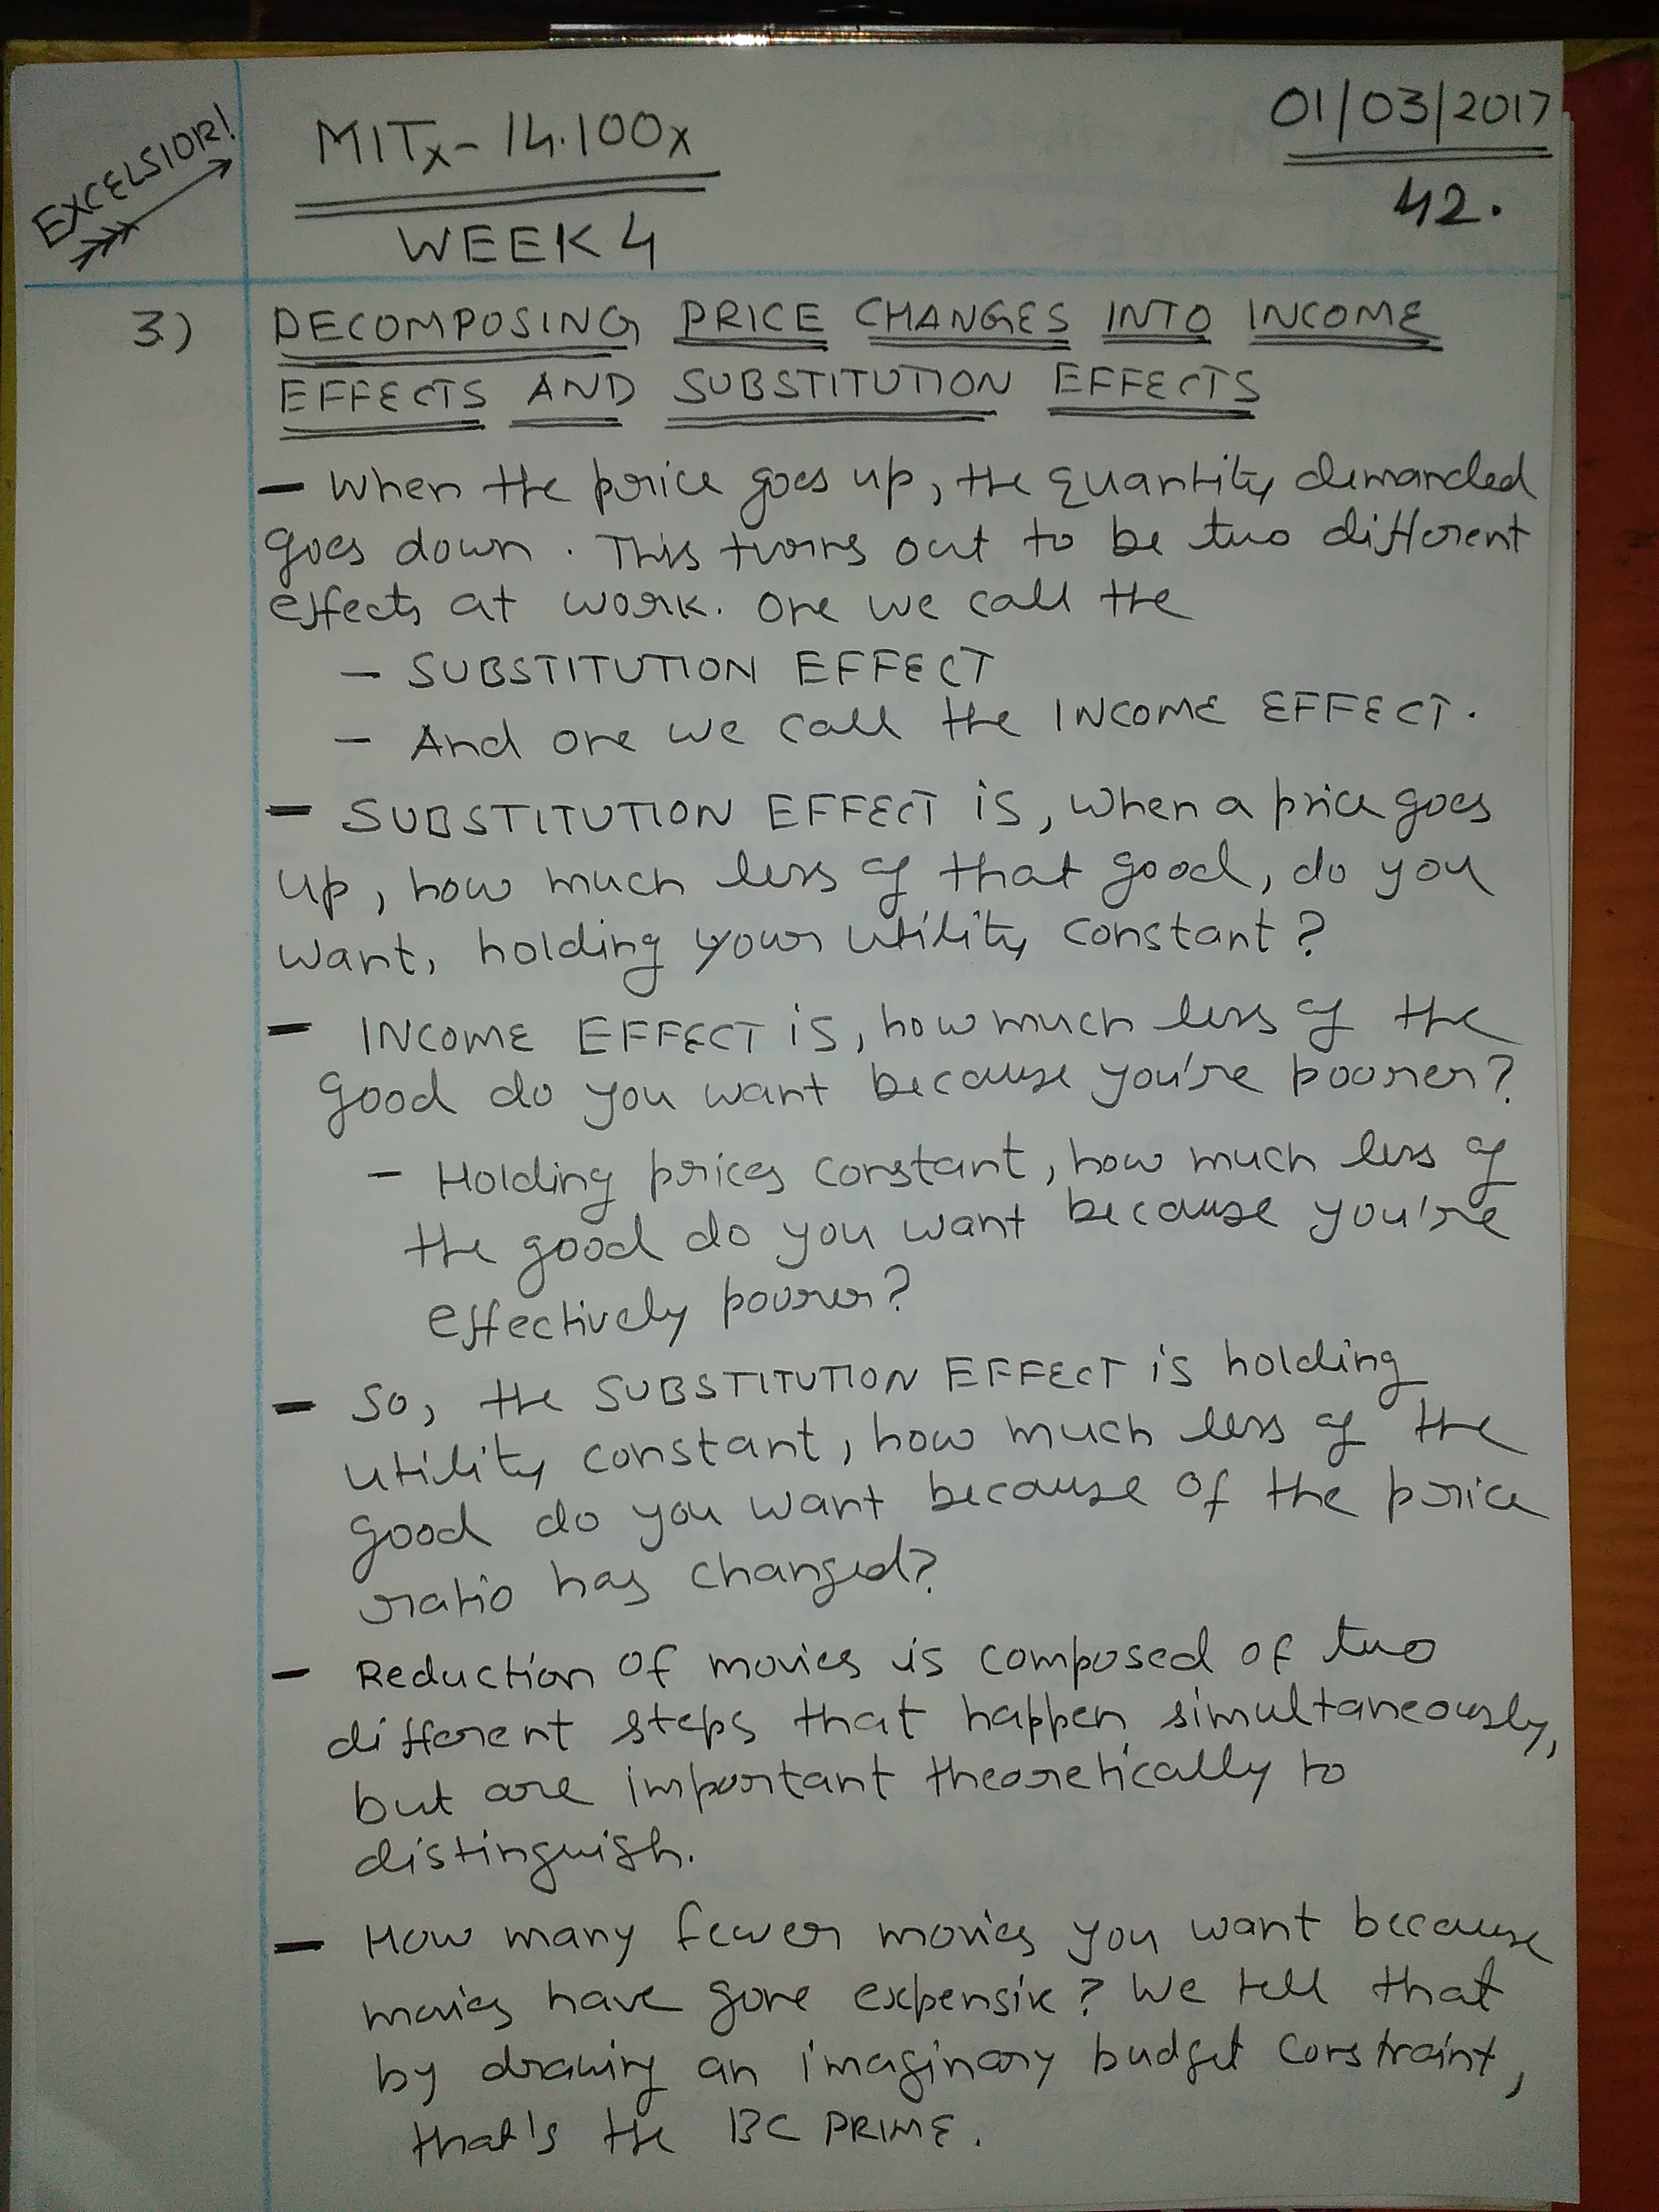 EXCELSIOR!
MITx - 14.100x
01/03/2017
42.
WEEK 4
3) DECOMPOSING PRICE CHANGES INTO INCOME
EFFECTS AND SUBSTITUTION EFFECTS
- When the price goes up, the quantity demanded
goes down. This turns out to be two different
effects at work. One we call the
- SUBSTITUTION EFFECT
- And one we call the INCOME EFFECT.
- SUBSTITUTION EFFECT is, when a price goes
up, how much less of that good, do you
want, holding your utility constant?
- INCOME EFFECT is, how much less of the
good do you want because you're poorer?
- Holding prices constant, how much less of
the good do you want because you're
effectively poorer?
- So, the SUBSTITUTION EFFECT is holding
utility constant, how much less of the
good do you want because of the price
ratio has changed?
- Reduction of movies is composed of two
different steps that happen simultaneously,
but are important theoretically to
distinguish.
- How many fewer movies you want because
movies have gone expensive? We tell that
by drawing an imaginary budget constraint,
that's the BC PRIME.